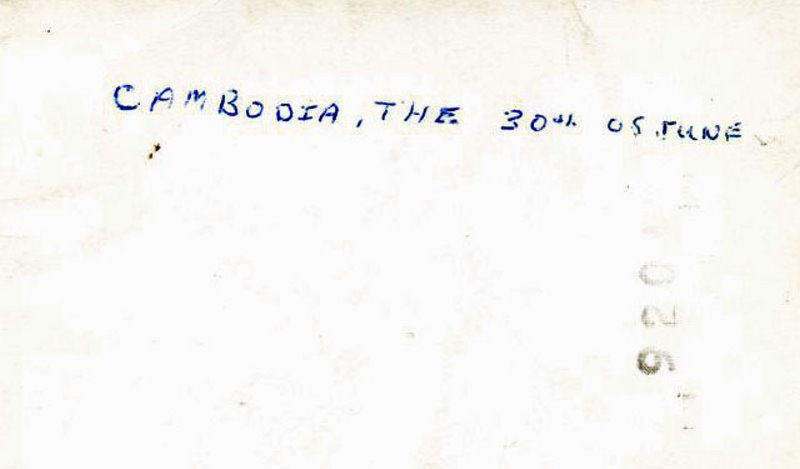 CAMBODIA, THE 30th OF JUNE